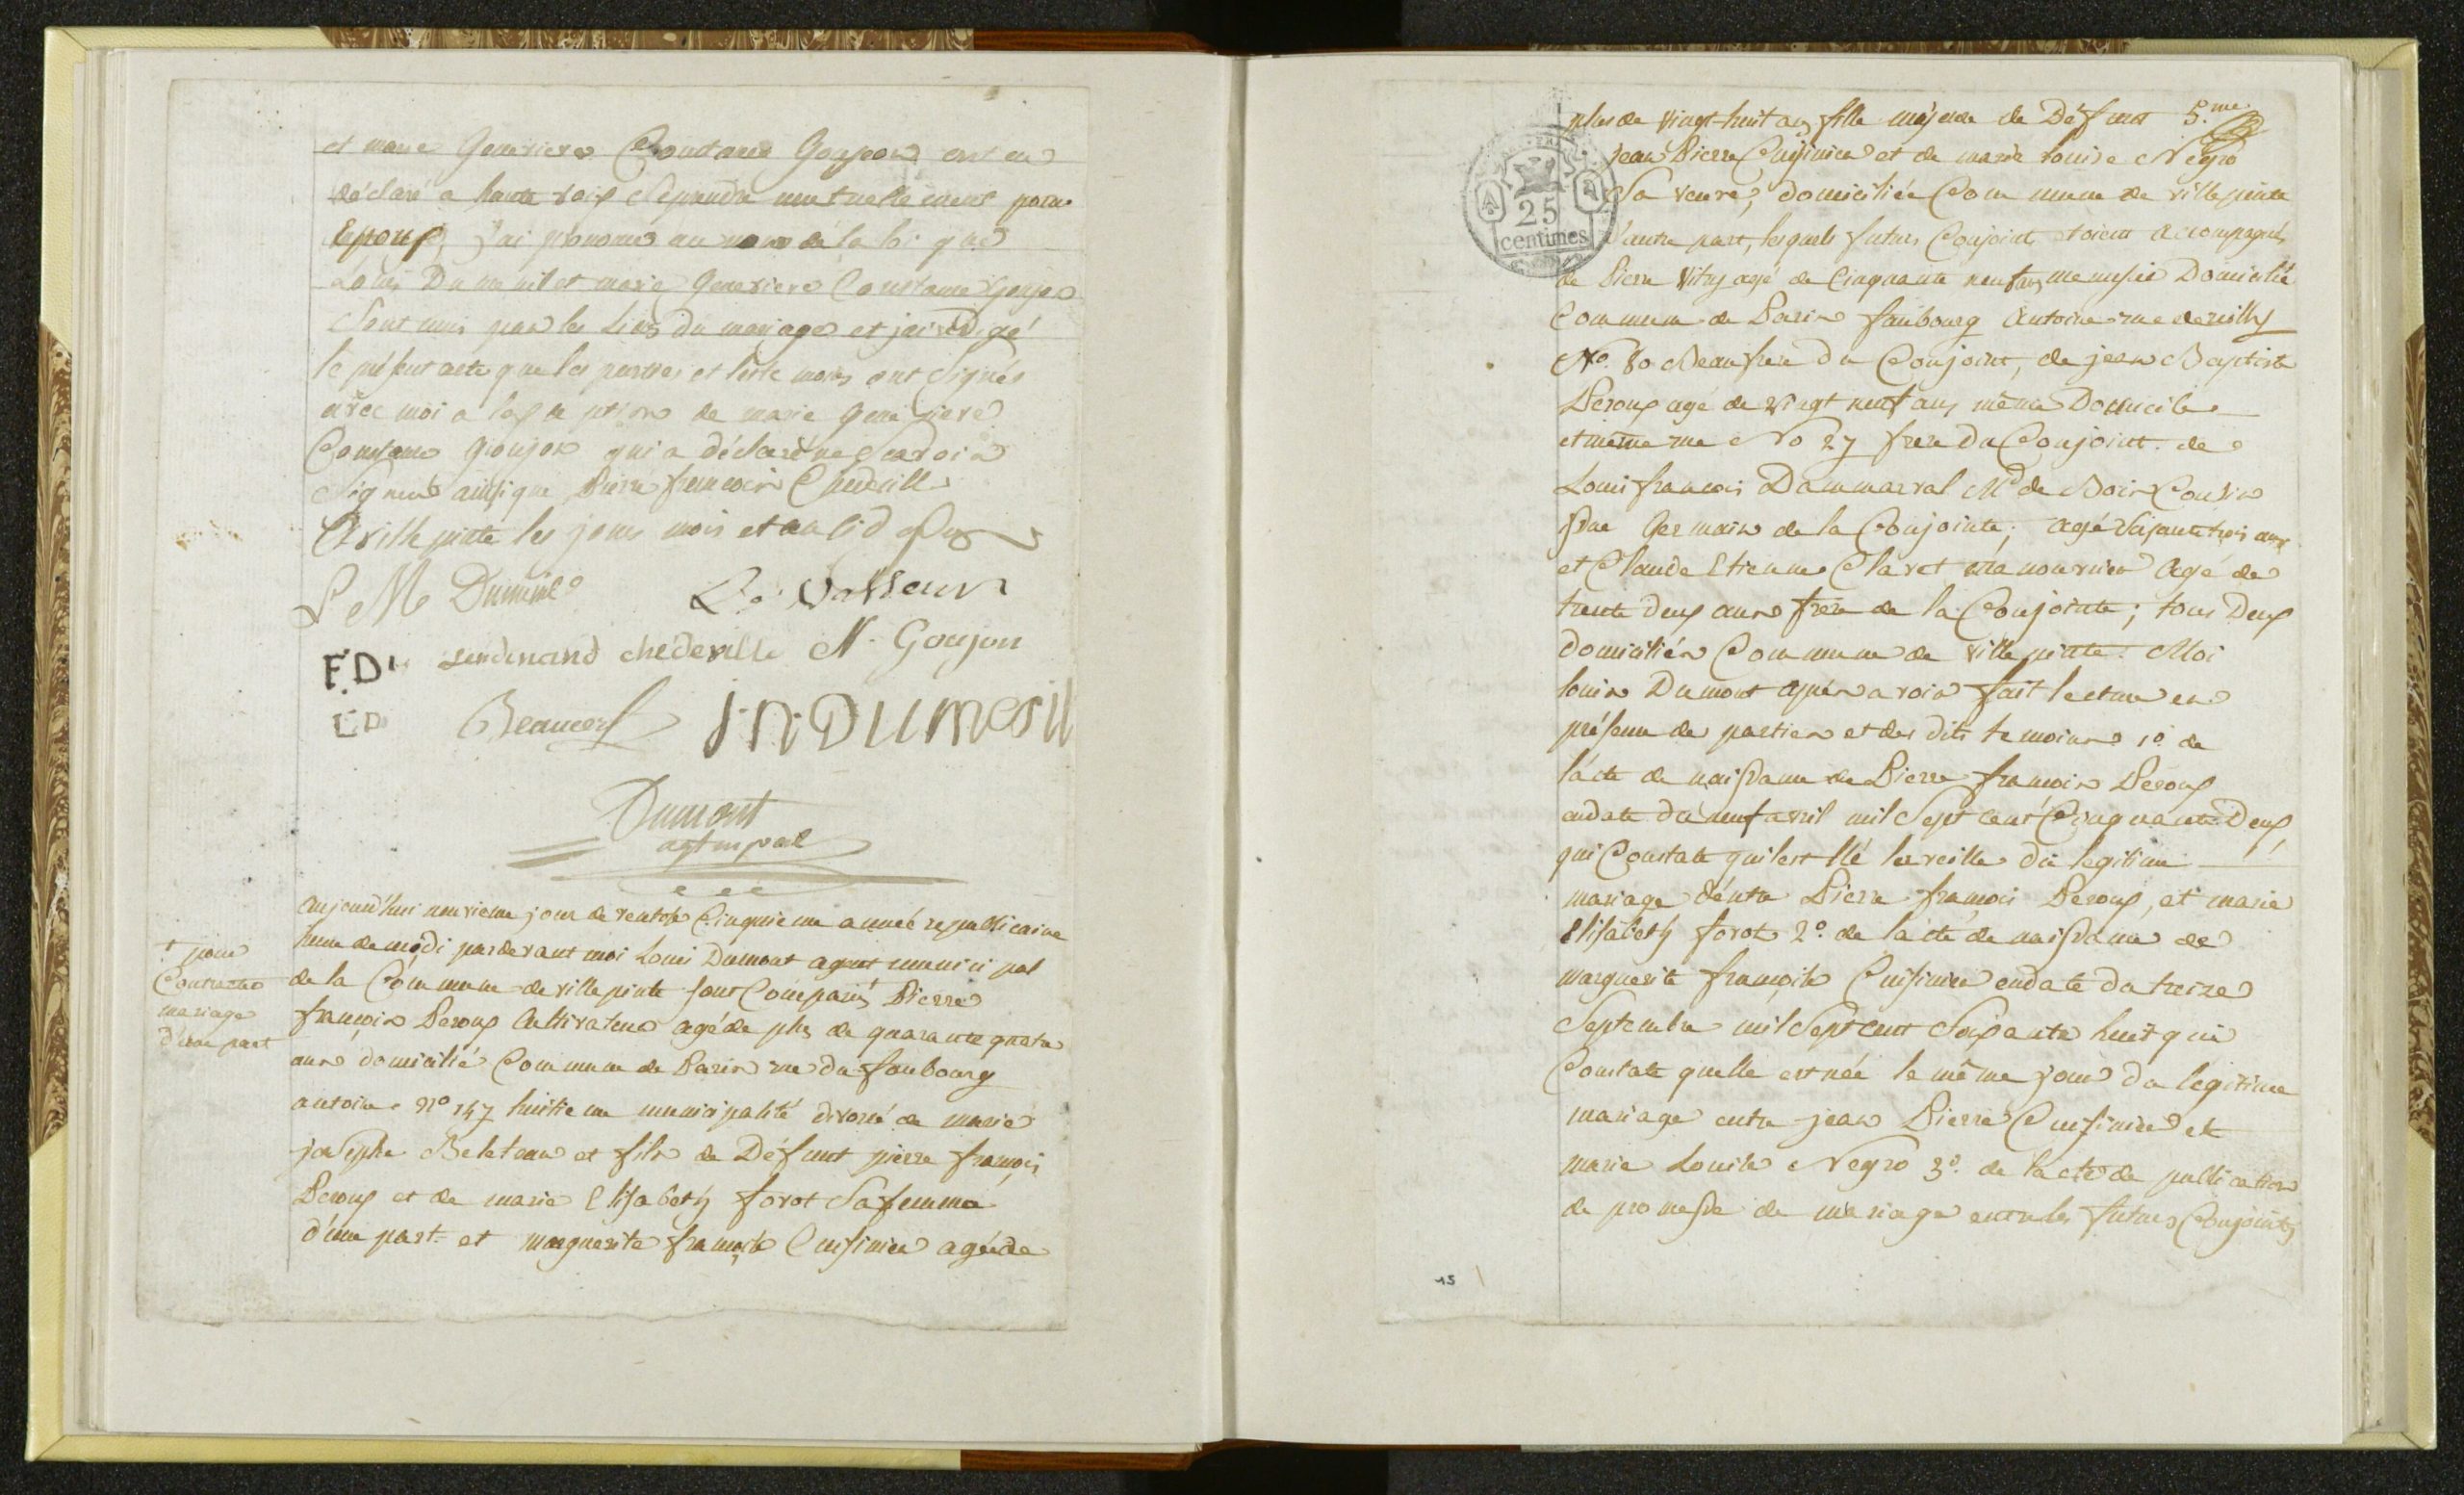 et marie Genevieve Constance Goujon ont eu
déclaré a haute voix se prendre mutuellement pour
Epoux, j'ai prononcé au nom de la loi que
Louis Dumenil et marie Genevieve Constance Goujon
sont unis par les liens du mariage et j'ai rédigé
le présent acte que les parties et les témoins ont signés
avec moi a l'exception de marie genevieve
Constance Goujon qui a déclaré ne savoir
signer ainsi que Pierre françois Chedeville
a villepinte les jour mois et an
L M Dumnil Le Vasseur
F.D. ferdinand chedeville N. Goujon
L D Beaucerf J.N. DUMESIL
Dumont
agt mpal
aujourd'hui neuvieme jour de ventose Cinquieme année republicaine
heure de midi pardevant moi Louis Dumont agent municipal
de la Commune de villepinte sont Comparus Pierre
françois Deroux Cultivateur agé de plus de quarante quatre
ans domicilié Commune de Paris rue du faubourg
antoine no 147 huitieme municipalité divorcé de marie
josephe Beleteau et fils de Défunt pierre françois
Deroux et de marie Elisabeth forot Sa femme
d'une part. et marguerite françoise Cuisinier agée de
† pour
Contracter
mariage
d'une part
plus de vingt-huit ans fille majeure de Défunt 5.me
jean Pierre Cuisinier et de marie louise Negro
Sa veuve, domiciliée Commune de villepinte
d'autre part, lesquels futurs Conjoints etoient accompagnés
de Pierre Vitry agé de Cinquante neuf ans menusier Domicilié
Commune de Paris faubourg Antoine rue de reuilly
No. 80 Beaufrere du Conjoint, de jean Baptiste
Deroux agé de vingt neuf ans même Domicile
et même rue No 27 frere du Conjoint. de
Louis françois Dammarval Md de Bois Cousin
issue Germain de la Conjointe; agé Soixante trois ans
et Claude Etienne Claret manouvrier agé de
trente deux ans frere de la Conjointe; tous Deux
domiciliés Commune de villepinte. Moi
louis Dumont après avoir fait lecture en
présence de parties et des dits temoins 1o. de
l'acte de naissance de Pierre françois Deroux
en date du neuf avril mil Sept cent Cinquante Deux
qui Constate qu'il est Né la veille du legitime
mariage d'entre Pierre françois Deroux, et marie
Elisabeth forot 2o. de l'acte de naissance de
marguerite françoise Cuisinier en date du treize
Septembre mil Sept cent Soixante huit qui
Constate qu'elle est née le même jour du legitime
mariage entre jean Pierre Cuisinier et
marie Louise Negro 3o. de l'acte de publication
de promesse de mariage entre les futurs Conjoints
25
centimes
15